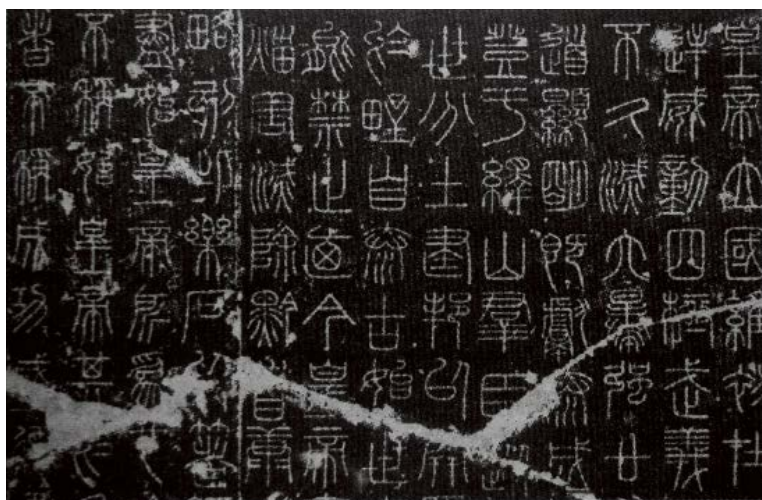 皇帝立國維初在
逆威動四極武義
不久滅六暴強廿
道顯明既獻泰成
登于繹山群臣從
世分土建邦以開
於野自泰古始世
能禁止迺今皇帝
災害滅除黔首康
略刻此樂石以著
盡始皇帝所為也
不稱始皇帝其於
者不稱成功盛德